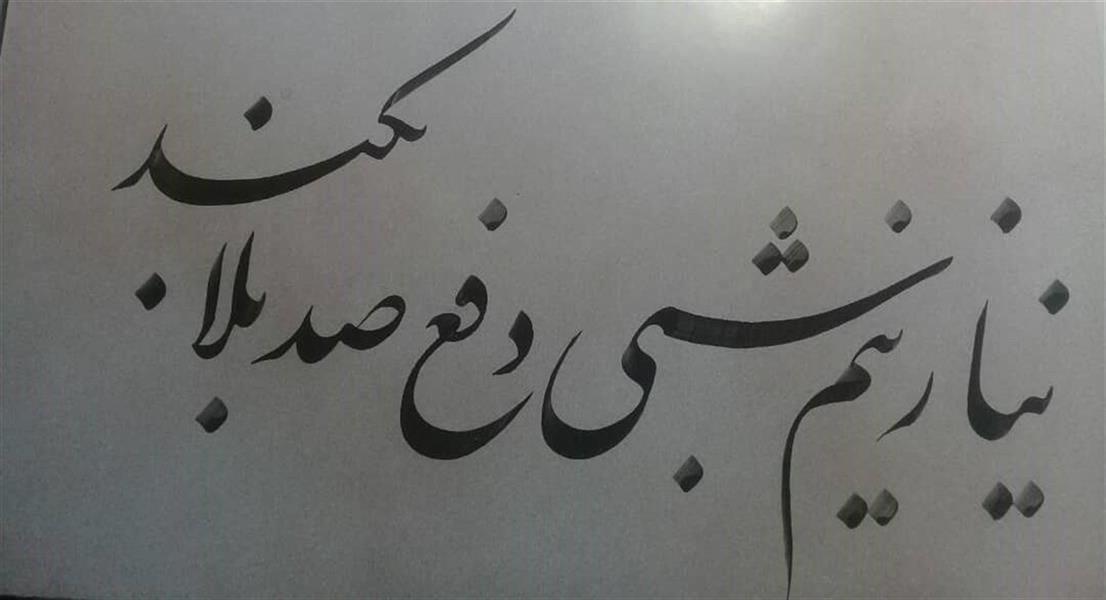 نیاز نیم شبی دفع صد بلا بکند